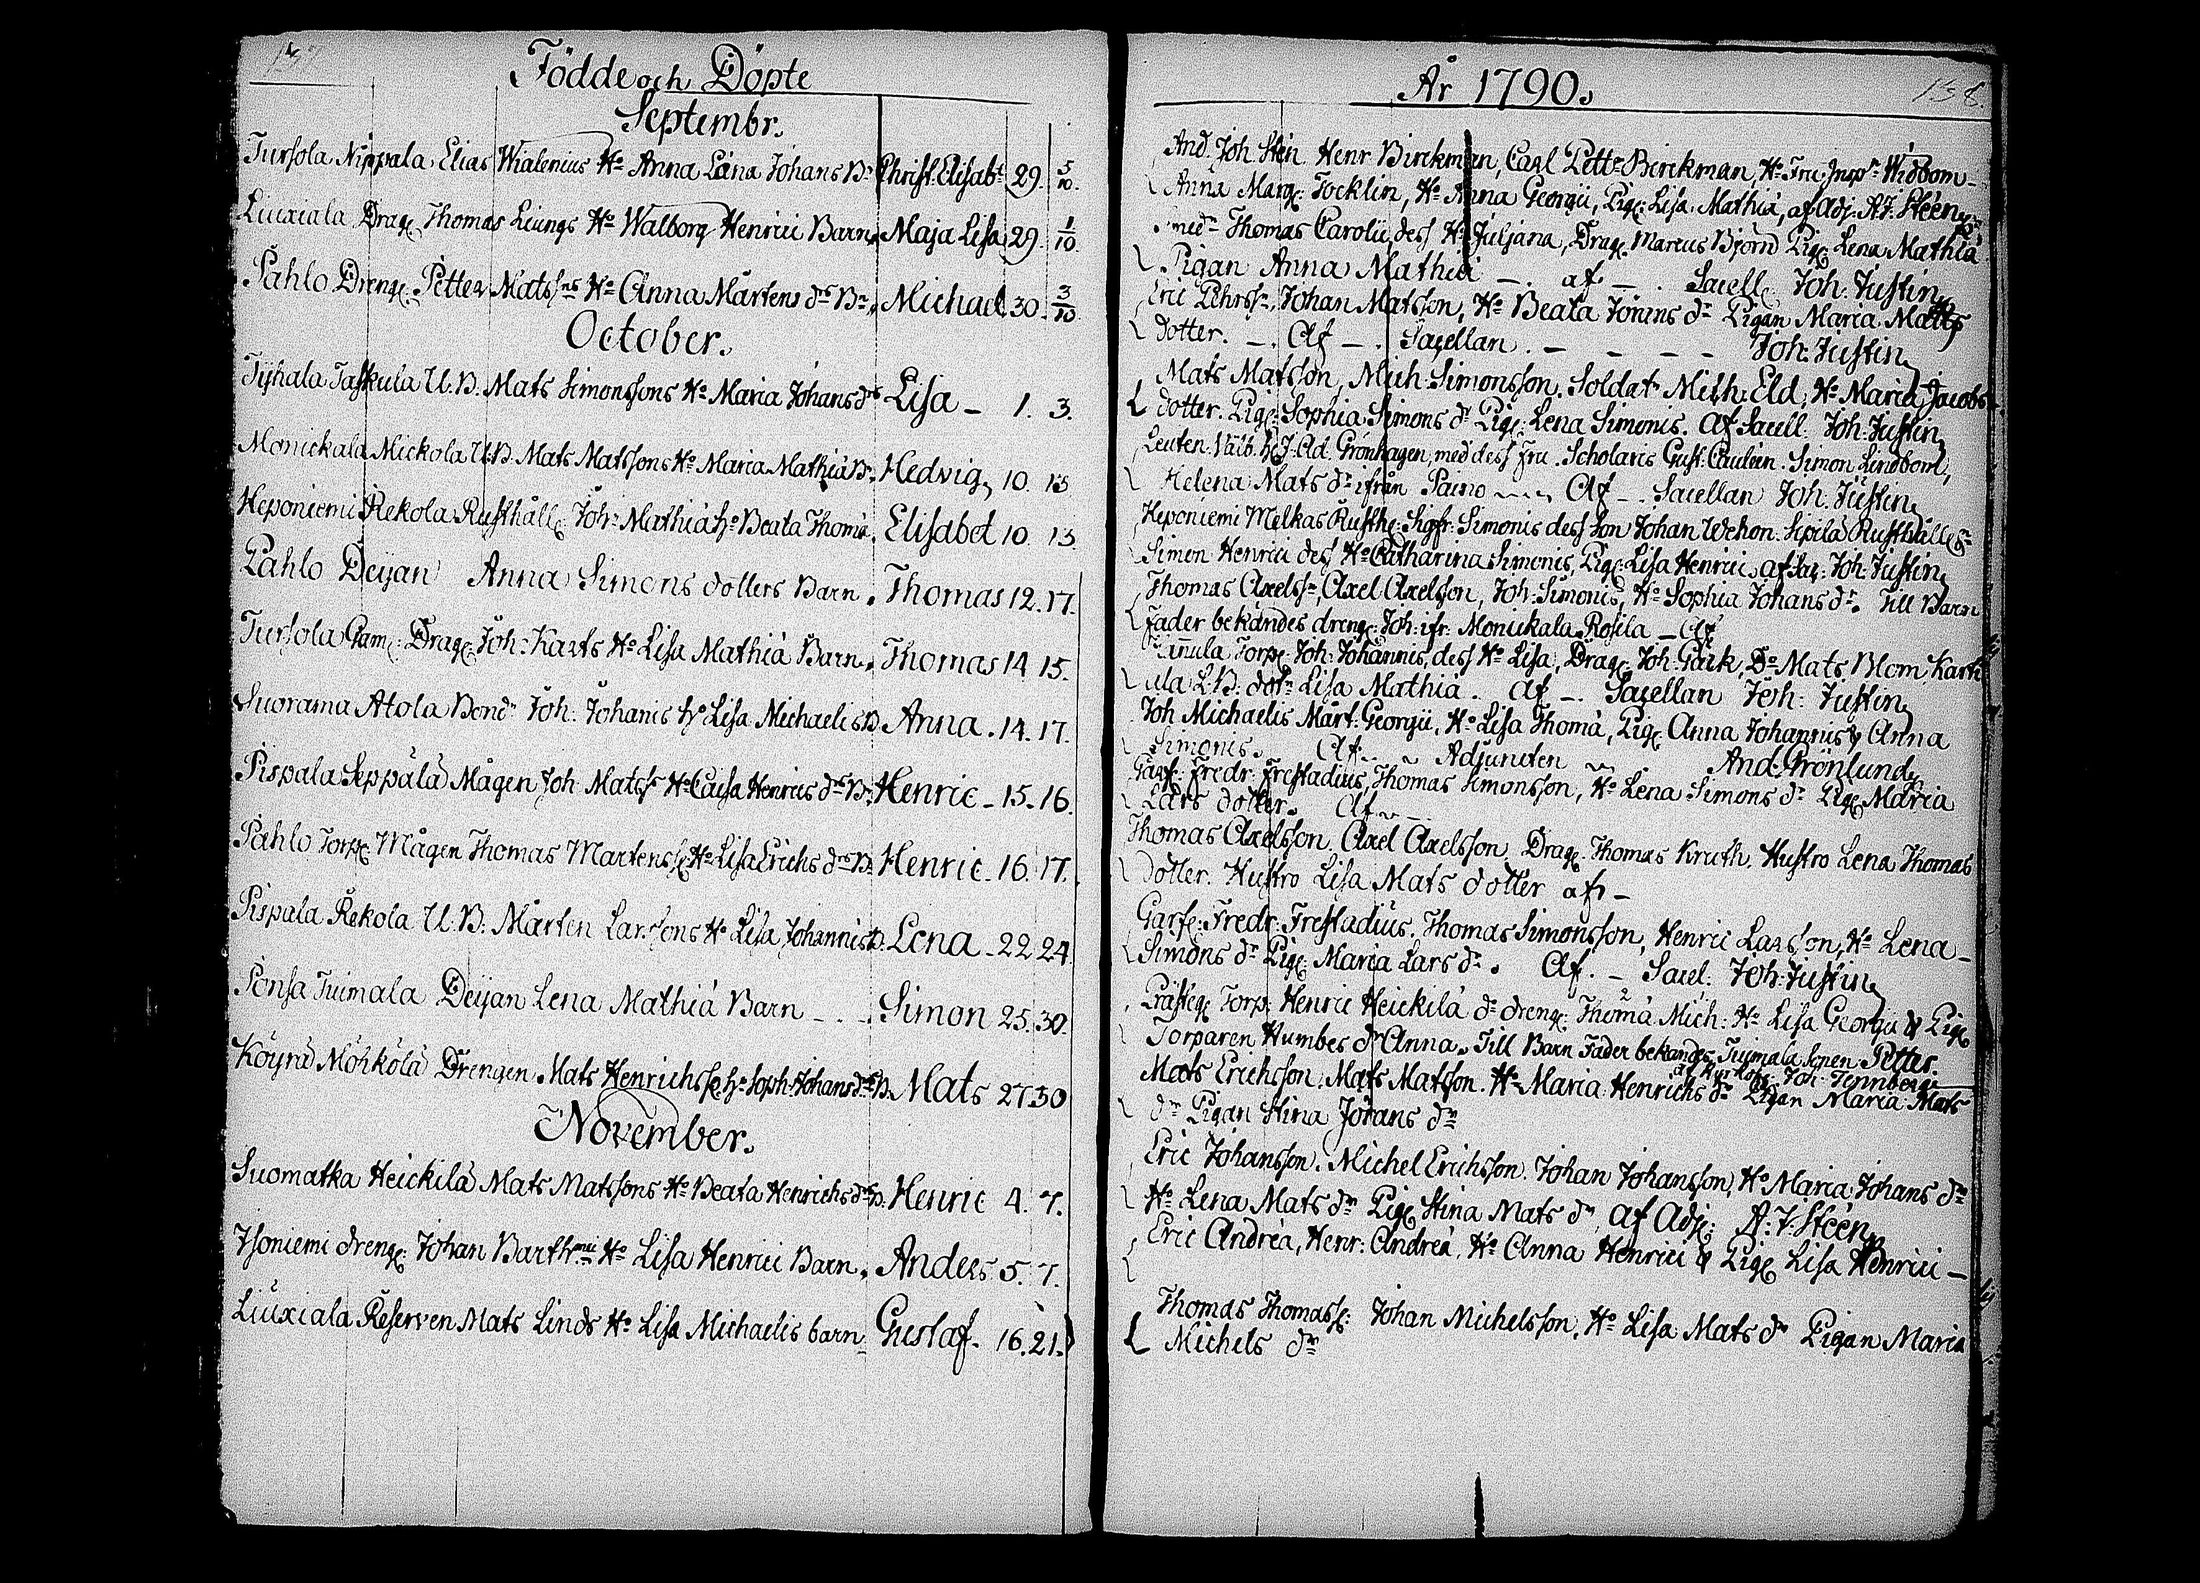 137
Födde och Döpte
Septembr.
Tursola Nippala Elias Wialenius Ho Anna Lâna Johans Bn Christ: Elisabt 29. 5/10.
Liuxiala Drag: Thomas Liungs Ho Walborg Henrici Barn, Maja Lisa 29. 1/10
Pahlo Dreng: Petter Matssns Ho Anna Mårtens drs Bn, Michael 30. 3/10
October.
Tÿhala Taskula U.B. Mats Simonssons Ho Maria Johansdrs Lisa – 1. 3.
Monickala Mickola U.B. Mats Matssons Ho Maria Mathiæ Bn, Hedvig, 10. 13
Heponiemi Rekola Rusthåll: Joh: Mathiæ Ho Beata Thomæ, Elisabet 10. 13.
Pahlo Deÿan Anna Simons dotters Barn. Thomas 12. 17.
Tursola Gam: Drag: Joh: Karts Ho Lisa Mathiæ Barn, Thomas 14 15.
Suorama Atola Bondn Joh: Johanis Ho Lisa Michaelis B. Anna. 14. 17.
Pispala Seppälä Mågen Joh: Matss: Ho Caisa Henrics drs Bn, Henric – 15. 16.
Pahlo Torp: Mågen Thomas Martenss: Ho Lisa Erichs drs B: Henric – 16. 17.
Pispala Rekola U.B: Mårten Larssons Ho Lisa Johannis B. Lena – 22 24.
Ponsa Tuimala Deijan Lena Mathiæ Barn – – . Simon 25. 30.
Köyrä Möhkölä Drengen Mats Henrichss: Ho Soph: Johansdrs B. Mats 27. 30
November.
Suomatka Heickilä Mats Matssons Ho Beata Henrichs drs B. Henric 4. 7.
Isoniemi dreng: Johan Barthmei Ho Lisa Henrici Barn, Anders 5. 7.
Liuxiala Reserven Mats Linds Ho Lisa Michaelis barn. Gustaf – 16. 21.
År 1790.
138.
And. Joh. Stén. Henr: Birckman, Carl Pettr Birckman, Ho Fru Inspr Widbom –
Anna Marg: Tocklin, Ho Anna Georgii, Pig: Lisa Mathiæ, af Adj: A.J. Steen
Thomas Carolii, dess Ho Juljana, Drag: Marcus Björn Pig: Lena Mathiæ
Pigan Anna Mathiæ – . af – . Sacell: Joh: Justin
Eric Pehrss:, Johan Matsson, Ho Beata Jörans dr Pigan Maria Matts
dotter. – . Af – . Sacellan. – – – – Joh: Justin
Mats Matsson, Mich: Simonsson. Soldatn Mich: Eld, Ho Maria Jacobs
dotter. Pig: Sophia Simons dr Pig: Lena Simonis. Af Sacell: Joh: Justin
Leuten: Välb. H. J. Ad. Grönhagen, med dess Fru. Scholaris Gust: Cauléen. Simon Lindbom,
Helena Mats dr ifrån Paino Af – . Sacellan Joh. Justin
Heponiemi Melkas Rusth: Sigfr: Simonis dess son Johan Wehon. Sipilä Rusthåll:
Simon Henrici dess Ho Catharina Simonis, Pig: Lisa Henrici af Sac: Joh: Justin
Thomas Axelss:, Axel Axelsson, Joh: Simonis, Ho Sophia Johans dr. Till Barn
Fader bekändes dreng: Joh: ifr: Monickala Rosila – Af
Torp: Joh: Johannis, dess Ho Lisa, Drag: Joh: Gack, Do Mats Blom Kart
ula L.B: dotr Lisa Mathiæ. Af – . Sacellan Joh: Justin
Joh Michaelis Mårt: Georgii, Ho Lisa Thomæ, Pig: Anna Johannis & Anna
Simonis. Af. Adjuncten And: Grönlund
Garf: Fredr: Frestadius, Thomas Simonsson, Ho Lena Simons dr Pig: Maria
Lars dotter. Af –
Thomas Axelsson, Axel Axelsson, Drag: Thomas Kruth, Hustro Lena Thomas
dotter. Hustro Lisa Mats dotter af –
Garf: Fredr: Frestadius. Thomas Simonsson, Henric Larsson, Ho Lena –
Simons dr Pig: Maria Lars dr. Af. – Sacel: Joh: Justin
Torp: Henric Heickilä do dreng: Thomæ Mich: Ho Lisa Georgii & Pig:
Torparen Humbes dr Anna. Till Barn Fader bekändes Tuimala Sonen Petter.
Joh: Tennberg
Mats Erichsson, Mats Matsson. Ho Maria Henrichs dr Pigan Maria Mats
dr Pigan Stina Jörans dr
Eric Johansson. Michel Erichsson. Johan Johansson, Ho Maria Johans dr
Ho Lena Mats dr Pig: Stina Mats dr af Adj: A: J: Steen
Eric Andreæ, Henr: Andreæ, Ho Anna Henrici & Pig: Lisa Henrici –
Thomas Thomass: Johan Michelsson. Ho Lisa Mats dr Pigan Maria
Michels dr